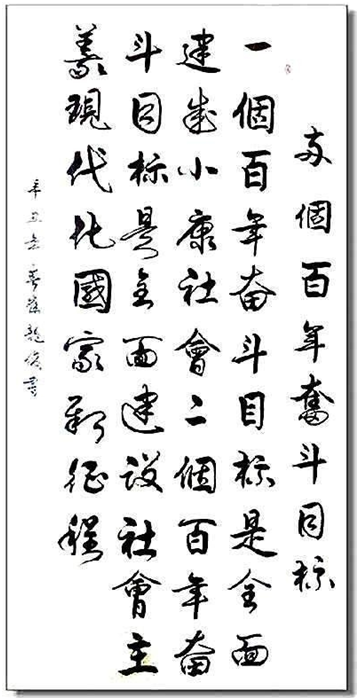 两個百年奮斗目标
一個百年奋斗目标是全面
建成小康社會二個百年奋
斗目标是全面建设社會主
義現代化國家新征程
辛丑年春
書